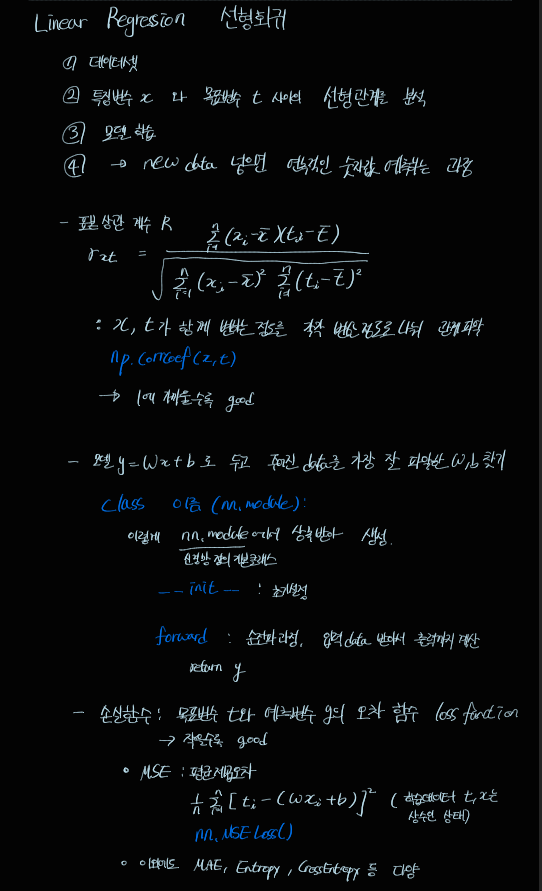 Linear Regression 선형회귀
① 데이터셋
② 특징변수 x 와 목표변수 t 사이의 선형관계를 분석
③ 모델 학습
④ → new data 넣으면 연속적인 숫자값 예측하는 과정
- 표본상관 계수 R
r_xt = \frac{\sum_{i=1}^{n}(x_i-\bar{x})(t_i-\bar{t})}{\sqrt{\sum_{i=1}^{n}(x_i-\bar{x})^2 \sum_{i=1}^{n}(t_i-\bar{t})^2}}
: x, t가 함께 변하는 정도를 각각 변한 정도로 나눠 관계파악
np.corrcoef(x,t)
→ 1에 가까울수록 good
- 모델 y=Wx+b 로 두고 주어진 data를 가장 잘 파악한 W,b 찾기
class 이름 (nn.module):
이렇게 nn.module에서 상속받아 생성.
신경망 정의 기본클래스
__init__ : 초기설정
forward : 순전파과정, 입력data 받아서 출력까지 계산
return y
- 손실함수 : 목표변수 t와 예측변수 y의 오차 함수 loss function
→ 작을수록 good
• MSE : 평균제곱오차
\frac{1}{n} \sum_{i=1}^{n} [t_i-(wx_i+b)]^2 (학습데이터 t,x는
상수인 상태)
nn.MSELoss()
• 이외에도 MAE, Entropy, CrossEntropy 등 다양